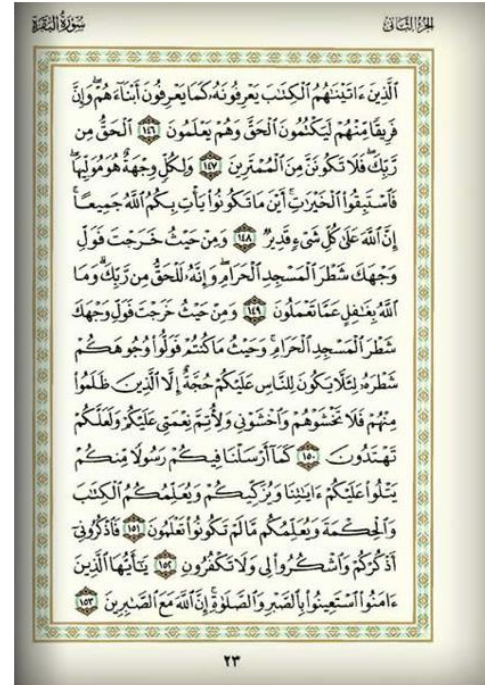 الجزء الثاني
سورة البقرة
الَّذِينَ ءَاتَيْنَٰهُمُ الْكِتَٰبَ يَعْرِفُونَهُۥ كَمَا يَعْرِفُونَ أَبْنَآءَهُمْ ۖ وَإِنَّ
فَرِيقًا مِّنْهُمْ لَيَكْتُمُونَ الْحَقَّ وَهُمْ يَعْلَمُونَ ١٤٦ الْحَقُّ مِن
رَّبِّكَ ۖ فَلَا تَكُونَنَّ مِنَ الْمُمْتَرِينَ ١٤٧ وَلِكُلٍّ وِجْهَةٌ هُوَ مُوَلِّيهَا ۖ
فَاسْتَبِقُوا۟ الْخَيْرَٰتِ ۚ أَيْنَ مَا تَكُونُوا۟ يَأْتِ بِكُمُ اللَّهُ جَمِيعًا ۚ
إِنَّ اللَّهَ عَلَىٰ كُلِّ شَىْءٍ قَدِيرٌ ١٤٨ وَمِنْ حَيْثُ خَرَجْتَ فَوَلِّ
وَجْهَكَ شَطْرَ الْمَسْجِدِ الْحَرَامِ ۖ وَإِنَّهُۥ لَلْحَقُّ مِن رَّبِّكَ ۗ وَمَا
اللَّهُ بِغَٰفِلٍ عَمَّا تَعْمَلُونَ ١٤٩ وَمِنْ حَيْثُ خَرَجْتَ فَوَلِّ وَجْهَكَ
شَطْرَ الْمَسْجِدِ الْحَرَامِ ۚ وَحَيْثُ مَا كُنتُمْ فَوَلُّوا۟ وُجُوهَكُمْ
شَطْرَهُۥ لِئَلَّا يَكُونَ لِلنَّاسِ عَلَيْكُمْ حُجَّةٌ إِلَّا الَّذِينَ ظَلَمُوا۟
مِنْهُمْ فَلَا تَخْشَوْهُمْ وَاخْشَوْنِى وَلِأُتِمَّ نِعْمَتِى عَلَيْكُمْ وَلَعَلَّكُمْ
تَهْتَدُونَ ١٥٠ كَمَآ أَرْسَلْنَا فِيكُمْ رَسُولًا مِّنكُمْ
يَتْلُوا۟ عَلَيْكُمْ ءَايَٰتِنَا وَيُزَكِّيكُمْ وَيُعَلِّمُكُمُ الْكِتَٰبَ
وَالْحِكْمَةَ وَيُعَلِّمُكُم مَّا لَمْ تَكُونُوا۟ تَعْلَمُونَ ١٥١ فَاذْكُرُونِىٓ
أَذْكُرْكُمْ وَاشْكُرُوا۟ لِى وَلَا تَكْفُرُونِ ١٥٢ يَٰٓأَيُّهَا الَّذِينَ
ءَامَنُوا۟ اسْتَعِينُوا۟ بِالصَّبْرِ وَالصَّلَوٰةِ ۚ إِنَّ اللَّهَ مَعَ الصَّٰبِرِينَ ١٥٣
٢٣